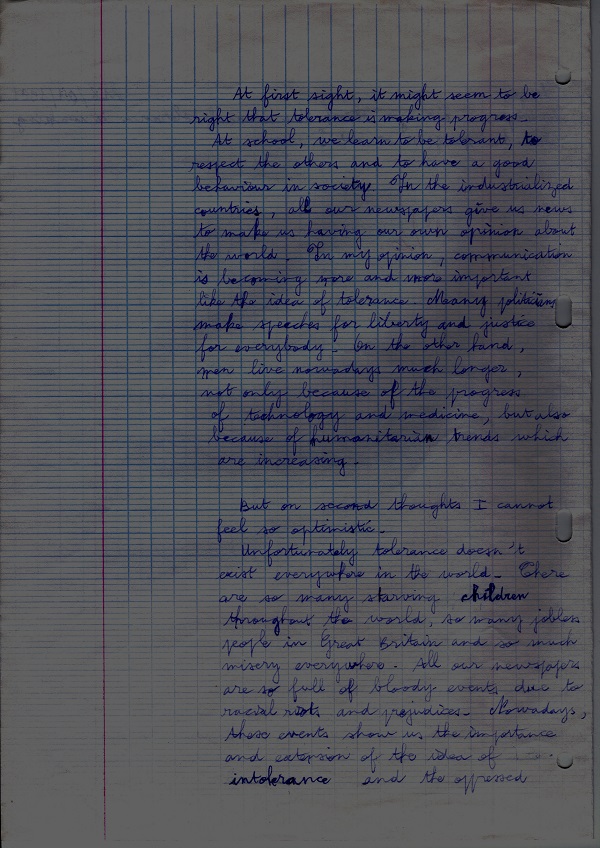 At first sight, it might seem to be
right that tolerance is making progress.
At school, we learn to be tolerant, to
respect the others and to have a good
behaviour in society. In the industrialized
countries, all our newspapers give us news
to make us having our own opinion about
the world. In my opinion, communication
is becoming more and more important
like the idea of tolerance. Meany politicians
make speeches for liberty and justice
for everybody. On the other hand,
men live nowadays much longer,
not only because of the progress
of technology and medicine, but also
because of humanitarian trends which
are increasing.
But on second thoughts I cannot
feel so optimistic.
Unfortunately tolerance doesn't
exist everywhere in the world. There
are so many starving children
throughout the world, so many jobless
people in Great Britain and so much
misery everywhere. All our newspapers
are so full of bloody events due to
racial riots and prejudices. Nowadays,
these events show us the importance
and extension of the idea of
intolerance and the oppressed